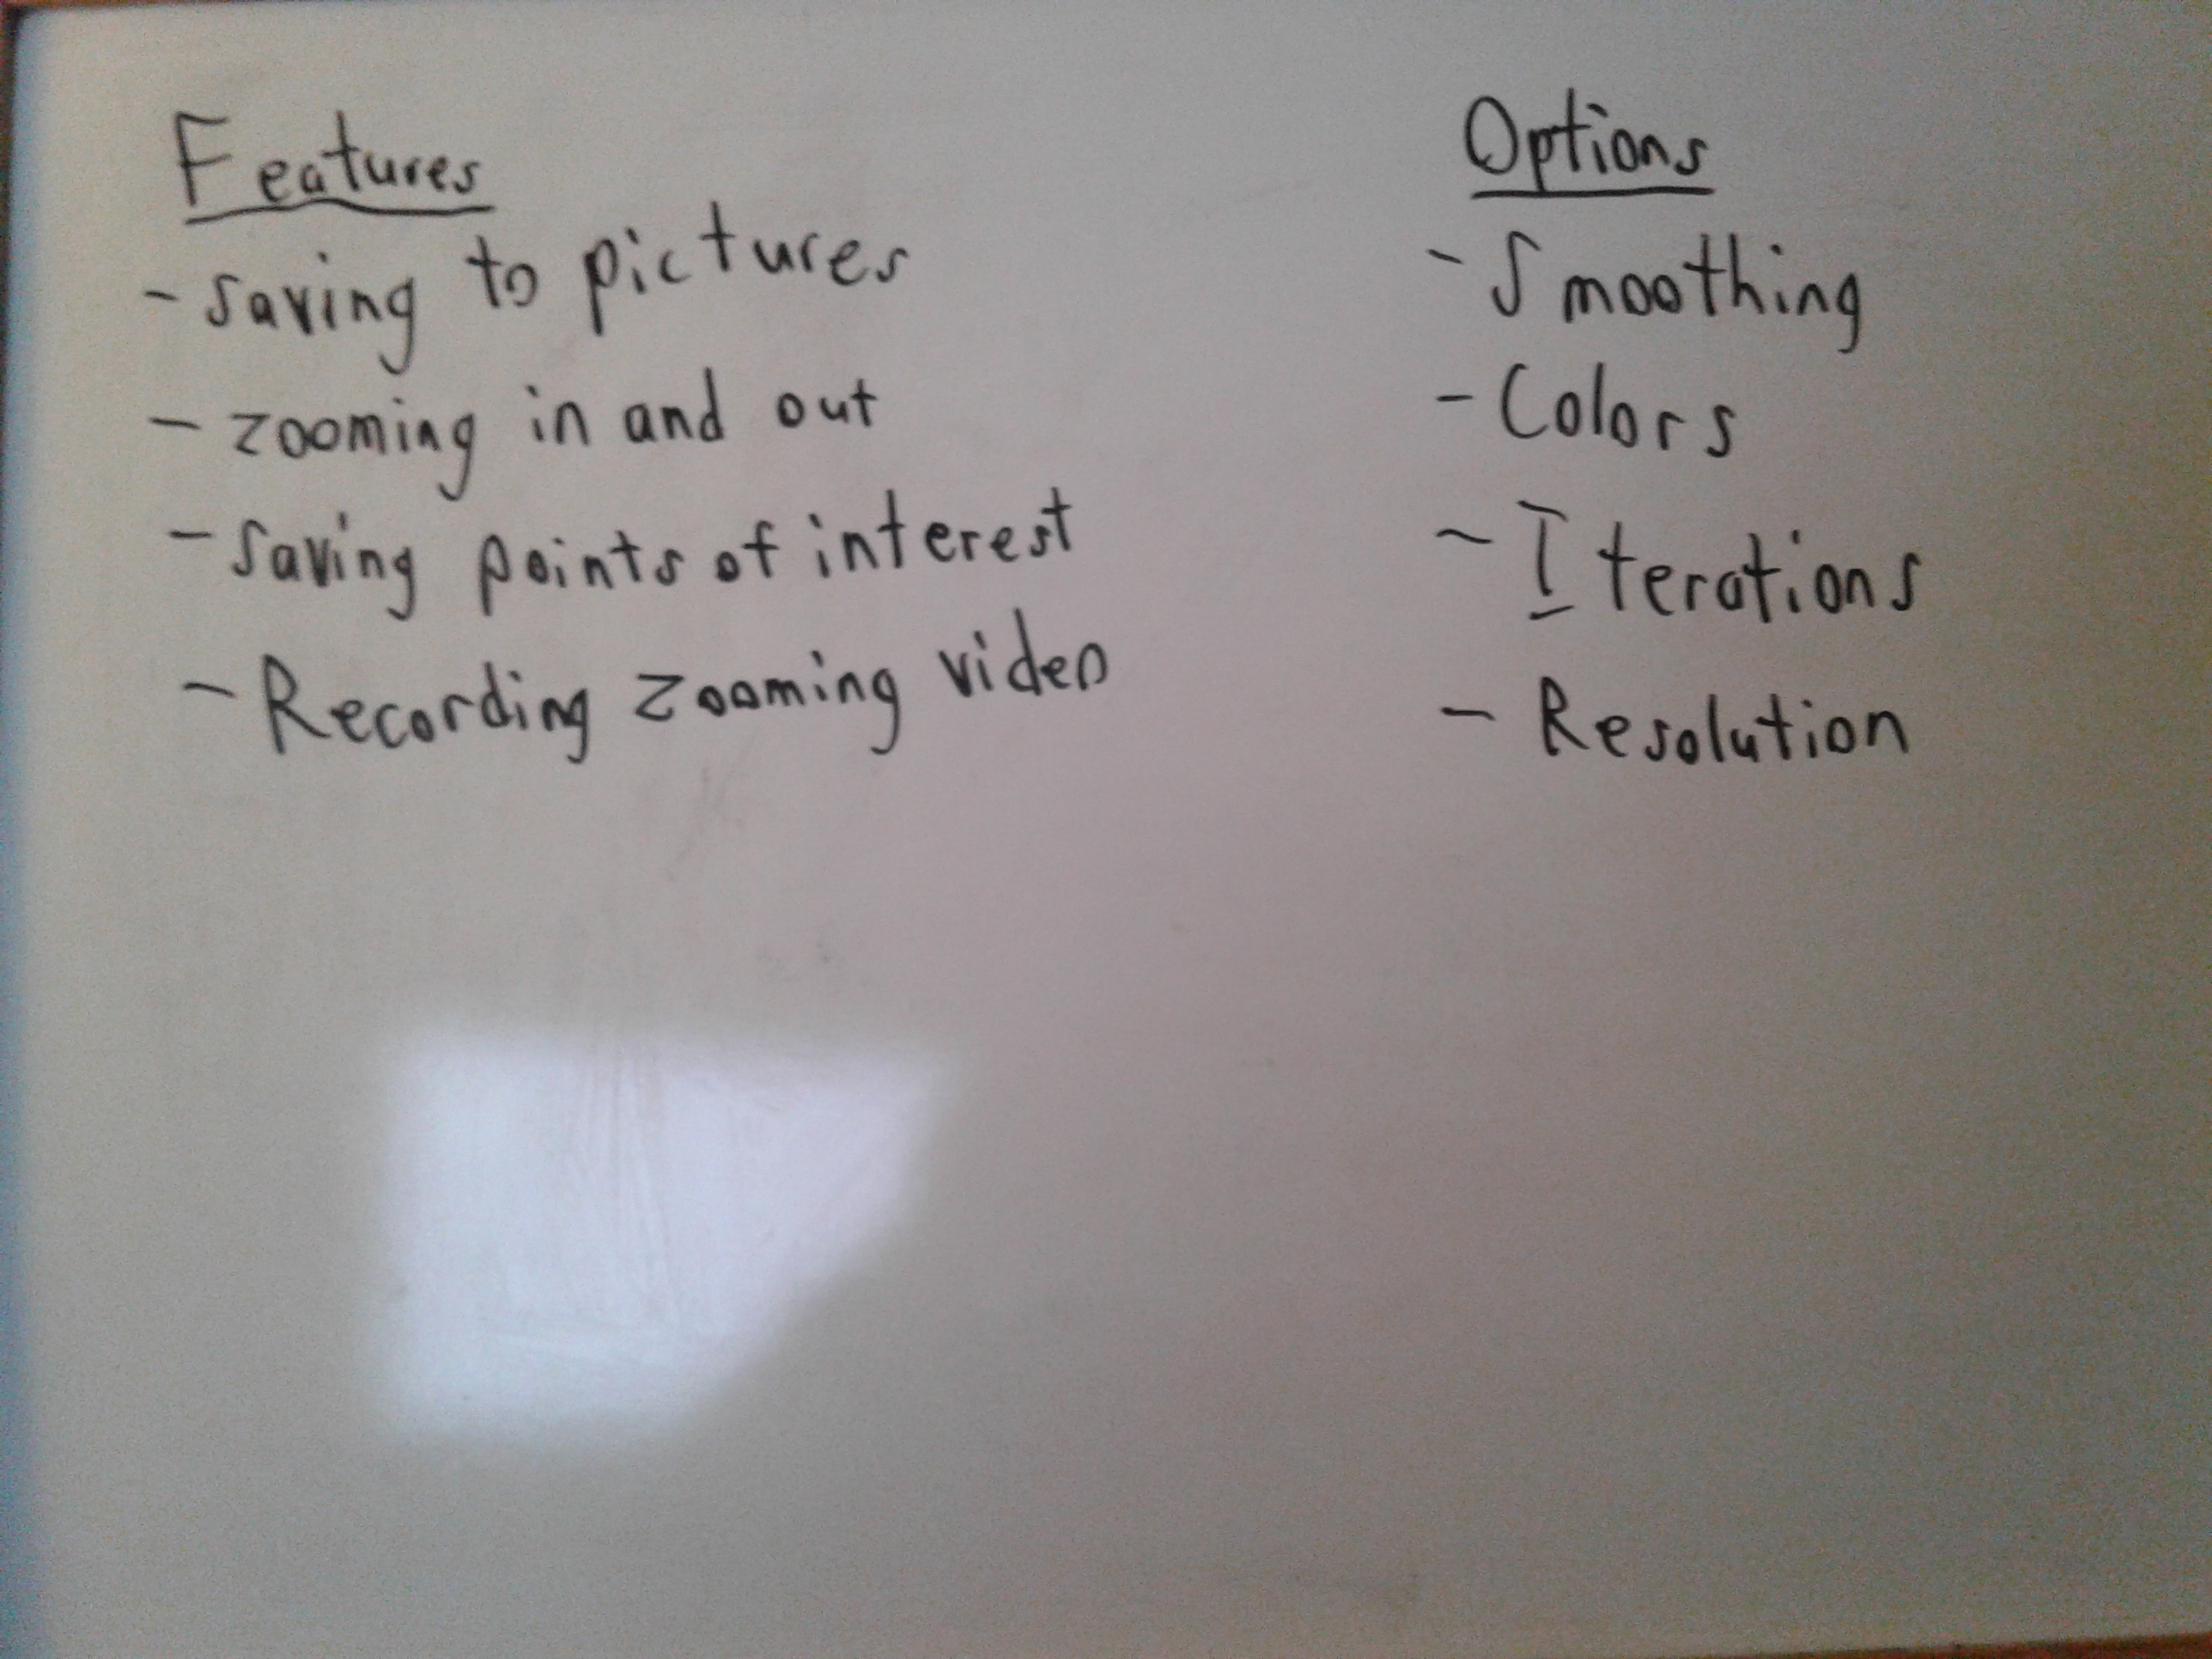 Features
- saving to pictures
- zooming in and out
- saving points of interest
- Recording zooming video
Options
- Smoothing
- Colors
- Iterations
- Resolution